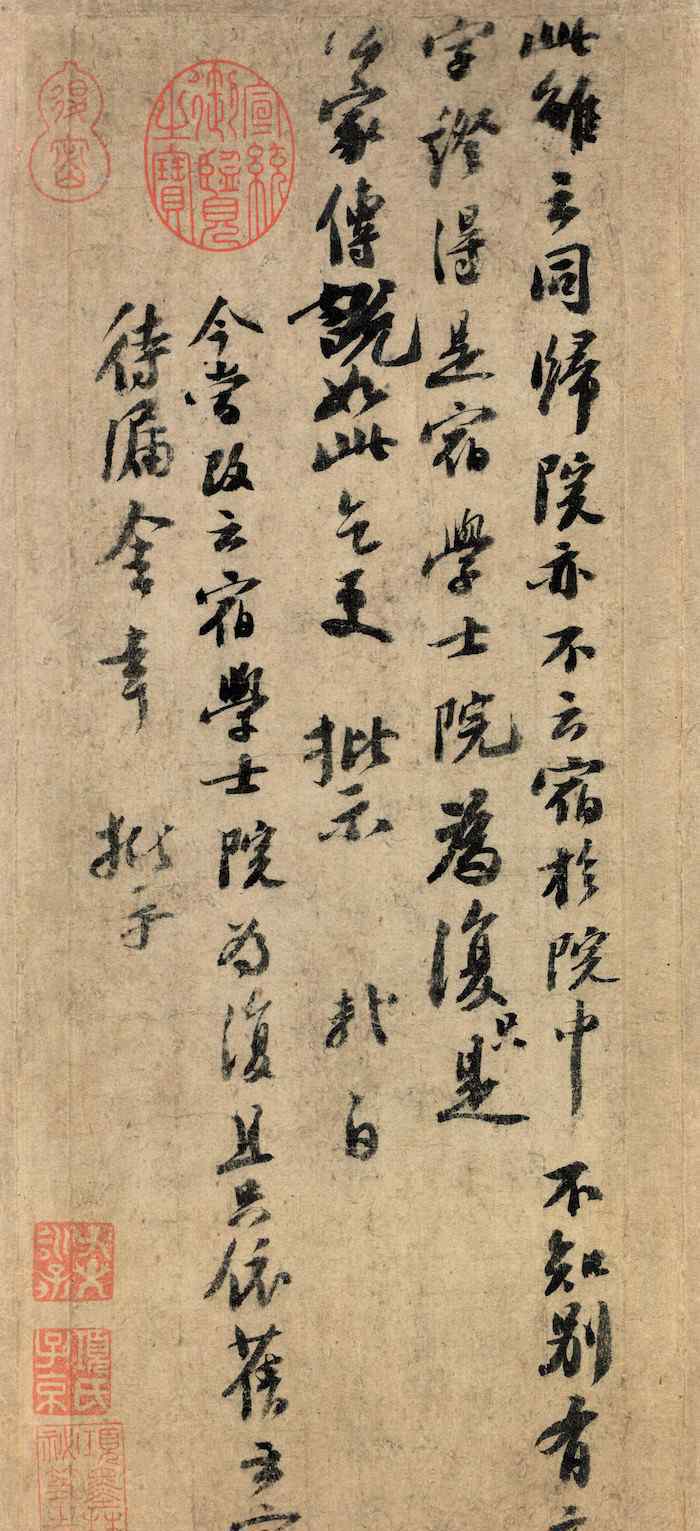 此雖云同歸院亦不云宿於院中 不知別有
字證得是宿學士院為復只是
公家傳說如此乞更 批示 白
今當改云宿學士院為復且只依舊云宿
待漏舍幸 批示
宣統御覽之寶
項氏子京